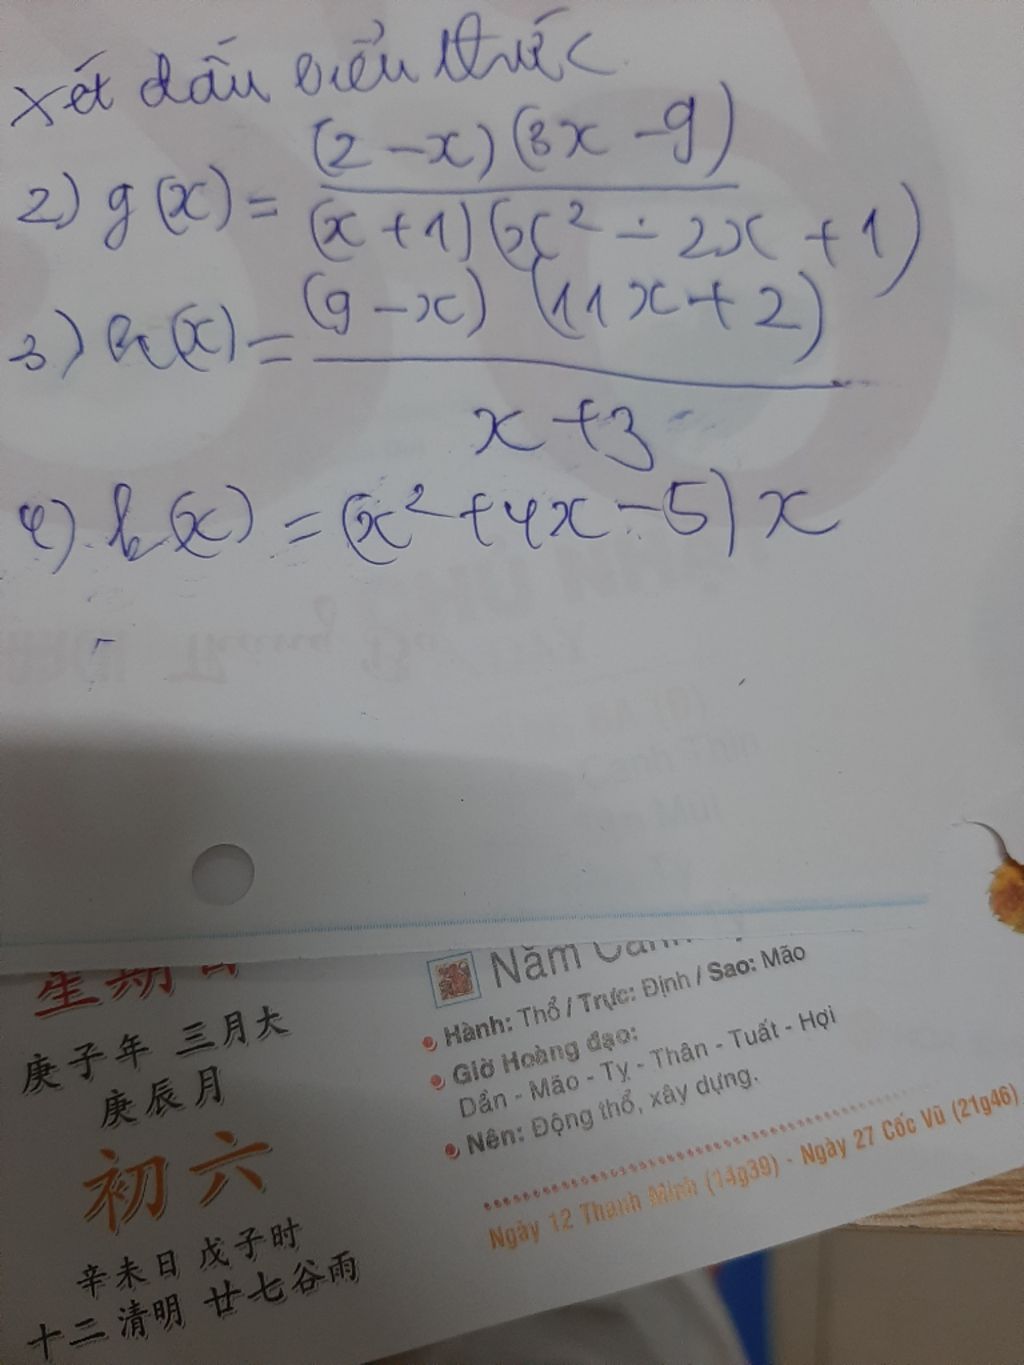 Xét dấu biểu thức
2) g(x) = (2 - x)(3x - 9) / (x + 1)(x² - 2x + 1)
3) h(x) = (9 - x) (11x + 2) / x + 3
4) k(x) = (x² + 4x - 5) x
Năm
• Hành: Thổ / Trực: Định / Sao: Mão
• Giờ Hoàng đạo:
Dần - Mão - Tỵ - Thân - Tuất - Hợi
• Nên: Động thổ, xây dựng.
Ngày 12 Thanh Minh (14g39) - Ngày 27 Cốc Vũ (21g46)
星期日
庚子年 三月大
庚辰月
初六
辛未日 戊子时
十二清明 廿七谷雨